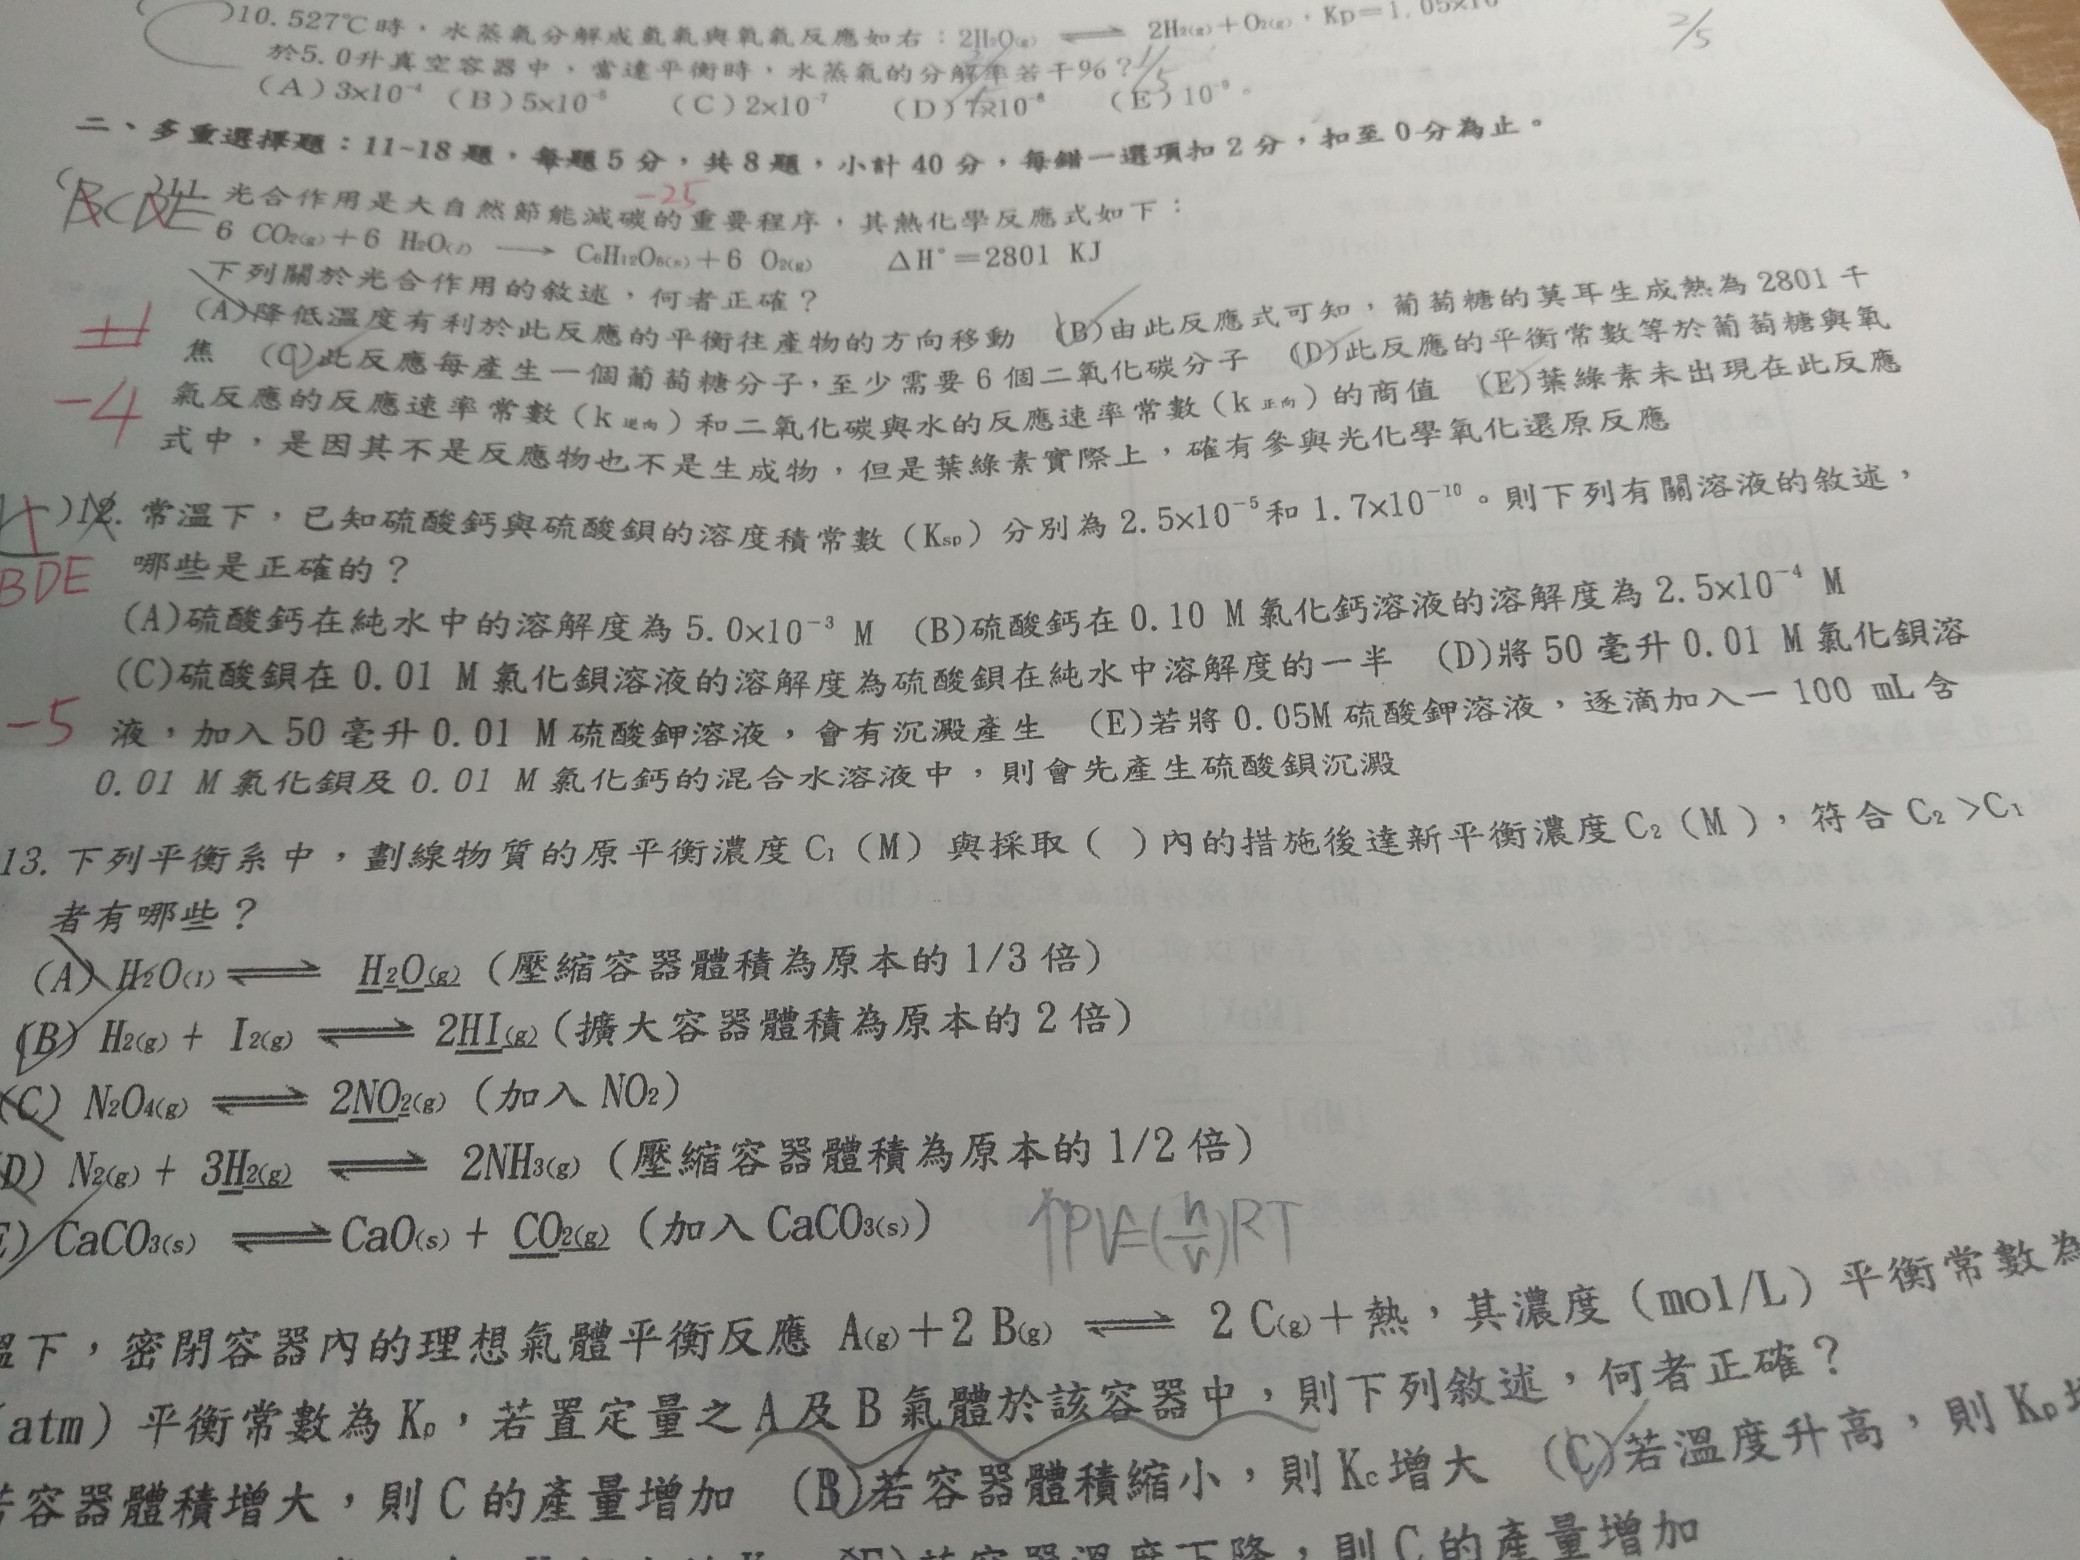 )10. 527℃時，水蒸氣分解成氫氣與氧氣反應如右：2H₂O(g) ⇌ 2H₂(g)+O₂(g)，Kp=1.05×10
2/5
於5.0升真空容器中，當達平衡時，水蒸氣的分解率若干%？
(A)3×10⁻⁴ (B)5×10⁻⁵ (C)2×10⁻⁷ (D)7×10⁻⁸ (E)10⁻⁹。
二、多重選擇題：11-18題，每題5分，共8題，小計40分，每錯一選項扣2分，扣至0分為止。
-25
)11. 光合作用是大自然節能減碳的重要程序，其熱化學反應式如下：
6 CO₂(g)+6 H₂O(l) ⟶ C₆H₁₂O₆(s)+6 O₂(g) ΔH°=2801 KJ
下列關於光合作用的敘述，何者正確？
(A)降低溫度有利於此反應的平衡往產物的方向移動 (B)由此反應式可知，葡萄糖的莫耳生成熱為2801千
焦 (C)此反應每產生一個葡萄糖分子，至少需要6個二氧化碳分子 (D)此反應的平衡常數等於葡萄糖與氧
-4
氣反應的反應速率常數(k逆向)和二氧化碳與水的反應速率常數(k正向)的商值 (E)葉綠素未出現在此反應
式中，是因其不是反應物也不是生成物，但是葉綠素實際上，確有參與光化學氧化還原反應
)12. 常溫下，已知硫酸鈣與硫酸鋇的溶度積常數(Ksp)分別為2.5×10⁻⁵和1.7×10⁻¹⁰。則下列有關溶液的敘述，
BDE
哪些是正確的？
(A)硫酸鈣在純水中的溶解度為5.0×10⁻³ M (B)硫酸鈣在0.10 M氯化鈣溶液的溶解度為2.5×10⁻⁴ M
(C)硫酸鋇在0.01 M氯化鋇溶液的溶解度為硫酸鋇在純水中溶解度的一半 (D)將50毫升0.01 M氯化鋇溶
-5
液，加入50毫升0.01 M硫酸鉀溶液，會有沉澱產生 (E)若將0.05M硫酸鉀溶液，逐滴加入一100 mL含
0.01 M氯化鋇及0.01 M氯化鈣的混合水溶液中，則會先產生硫酸鋇沉澱
13. 下列平衡系中，劃線物質的原平衡濃度C₁(M)與採取( )內的措施後達新平衡濃度C₂(M)，符合C₂>C₁
者有哪些？
(A) H₂O(l) ⇌ H₂O(g) (壓縮容器體積為原本的1/3倍)
(B) H₂(g) + I₂(g) ⇌ 2HI(g) (擴大容器體積為原本的2倍)
(C) N₂O₄(g) ⇌ 2NO₂(g) (加入NO₂)
D) N₂(g) + 3H₂(g) ⇌ 2NH₃(g) (壓縮容器體積為原本的1/2倍)
E) CaCO₃(s) ⇌ CaO(s) + CO₂(g) (加入CaCO₃(s))
↑PV=(n/v)RT
溫下，密閉容器內的理想氣體平衡反應 A(g)+2 B(g) ⇌ 2 C(g)+熱，其濃度(mol/L)平衡常數為
(atm)平衡常數為Kp，若置定量之A及B氣體於該容器中，則下列敘述，何者正確？
若容器體積增大，則C的產量增加 (B)若容器體積縮小，則Kc增大 (C)若溫度升高，則Kp增
(E)若容器溫度下降，則C的產量增加